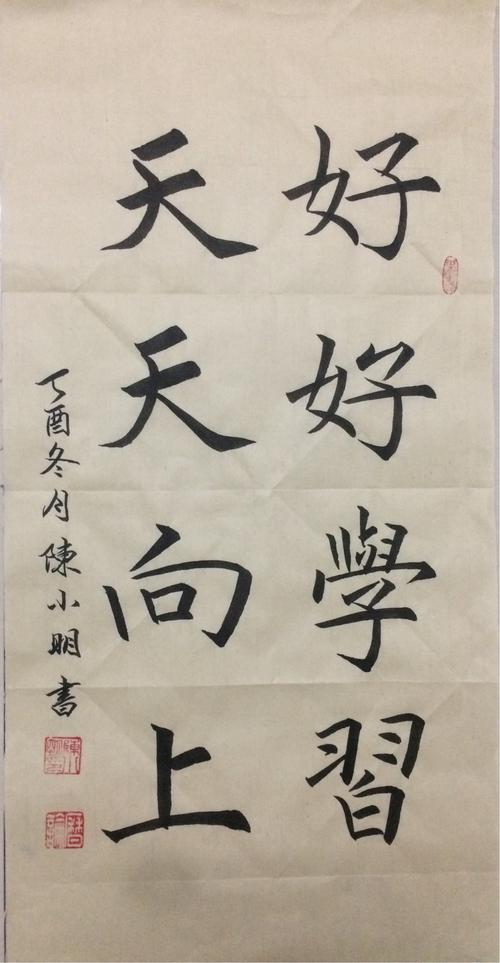 好好學習
天天向上
丁酉冬月陳小明書